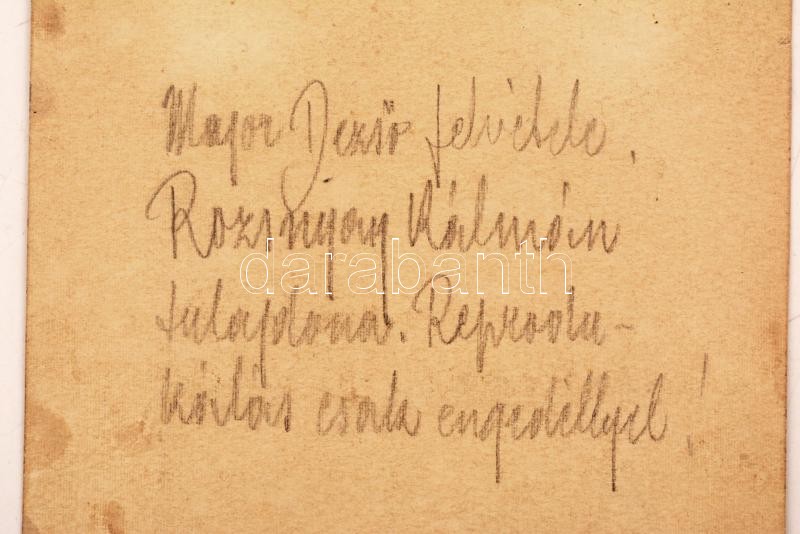 Major Dezső felvétele,
Rozsnyay Kálmán
darabanth
tulajdona. Reprodu-
kálás csak engedéllyel!